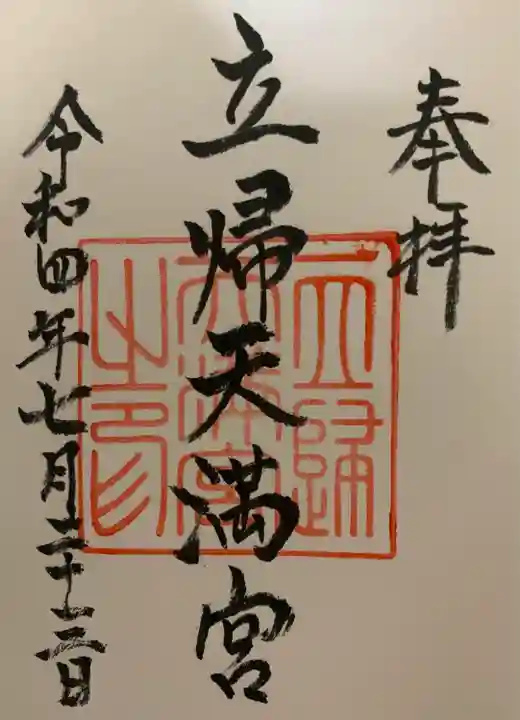 奉拝
立帰天満宮
令和四年七月二十三日
立帰
天満宮
之印